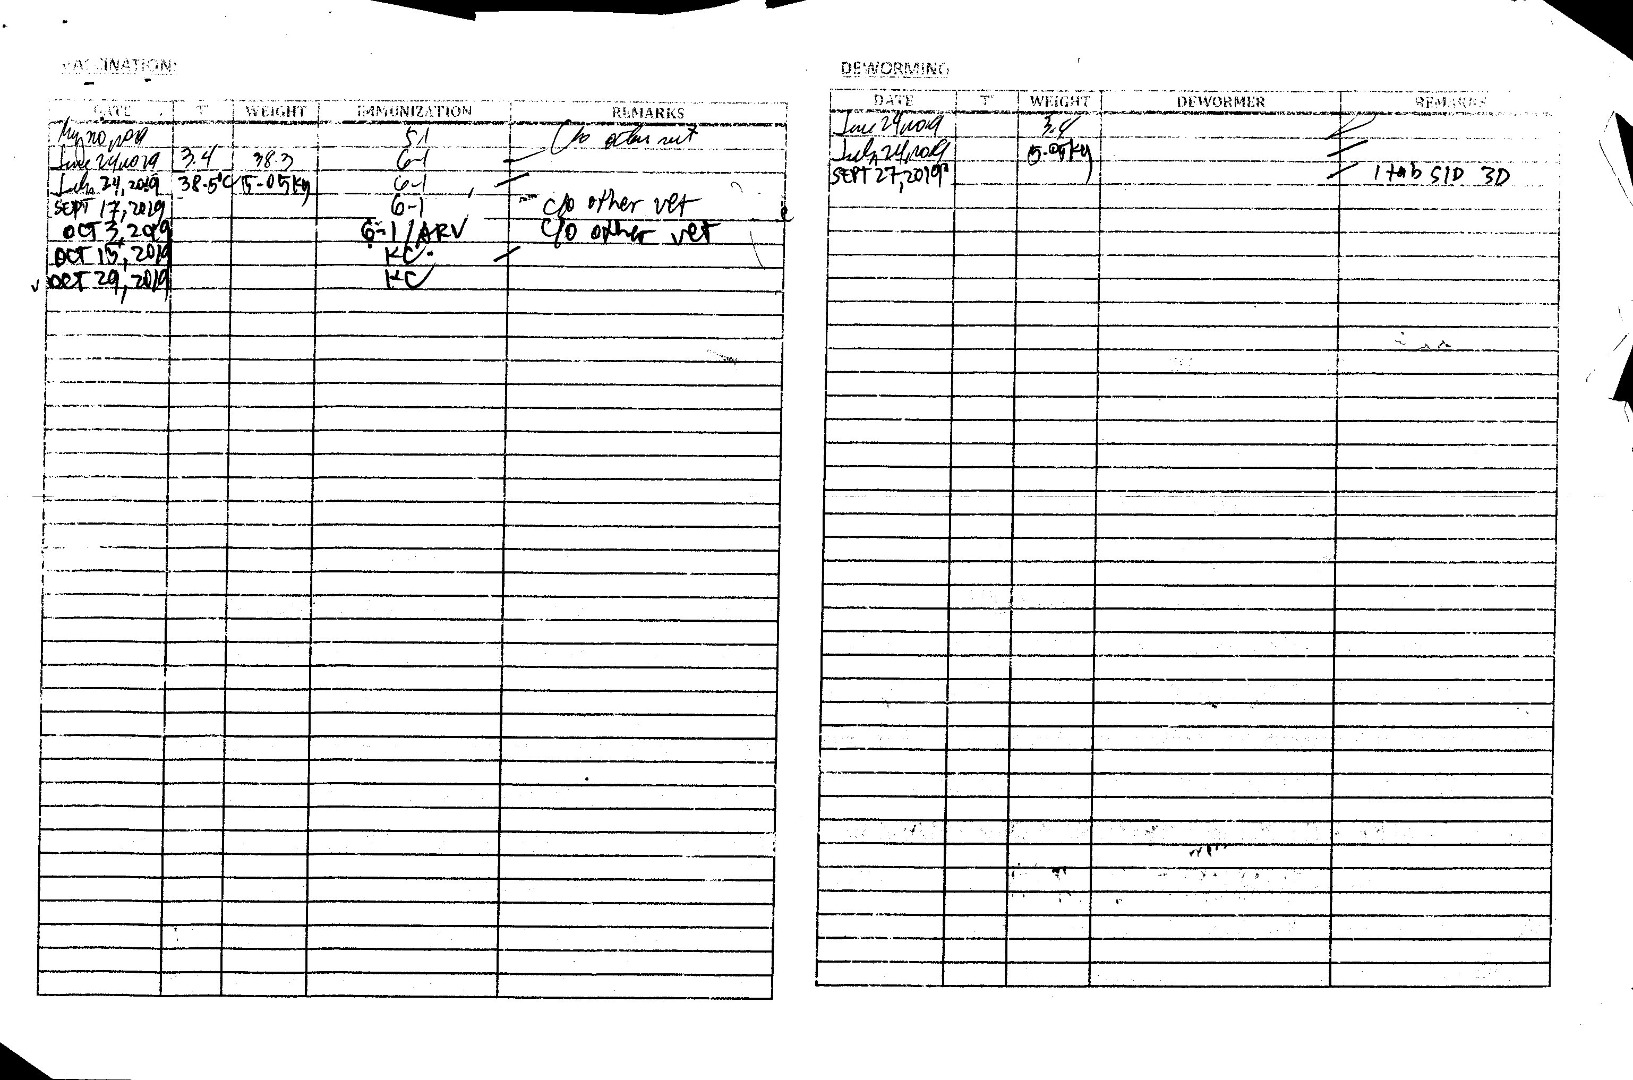 VACCINATION:
DATE T° WEIGHT IMMUNIZATION REMARKS
May 20, 2019 5-1 c/o other vet
June 24, 2019 3.4 38.3 6-1
July 24, 2019 38.5°C 5.05Kg 6-1
SEPT 17, 2019 6-1 c/o other vet
OCT 3, 2019 6-1/ARV c/o other vet
OCT 15, 2019 KC
OCT 29, 2019 KC
DEWORMING
DATE T° WEIGHT DEWORMER REMARKS
June 24, 2019 3.4
July 24, 2019 5.05Kg
SEPT 27, 2019 1 tab SID 3D